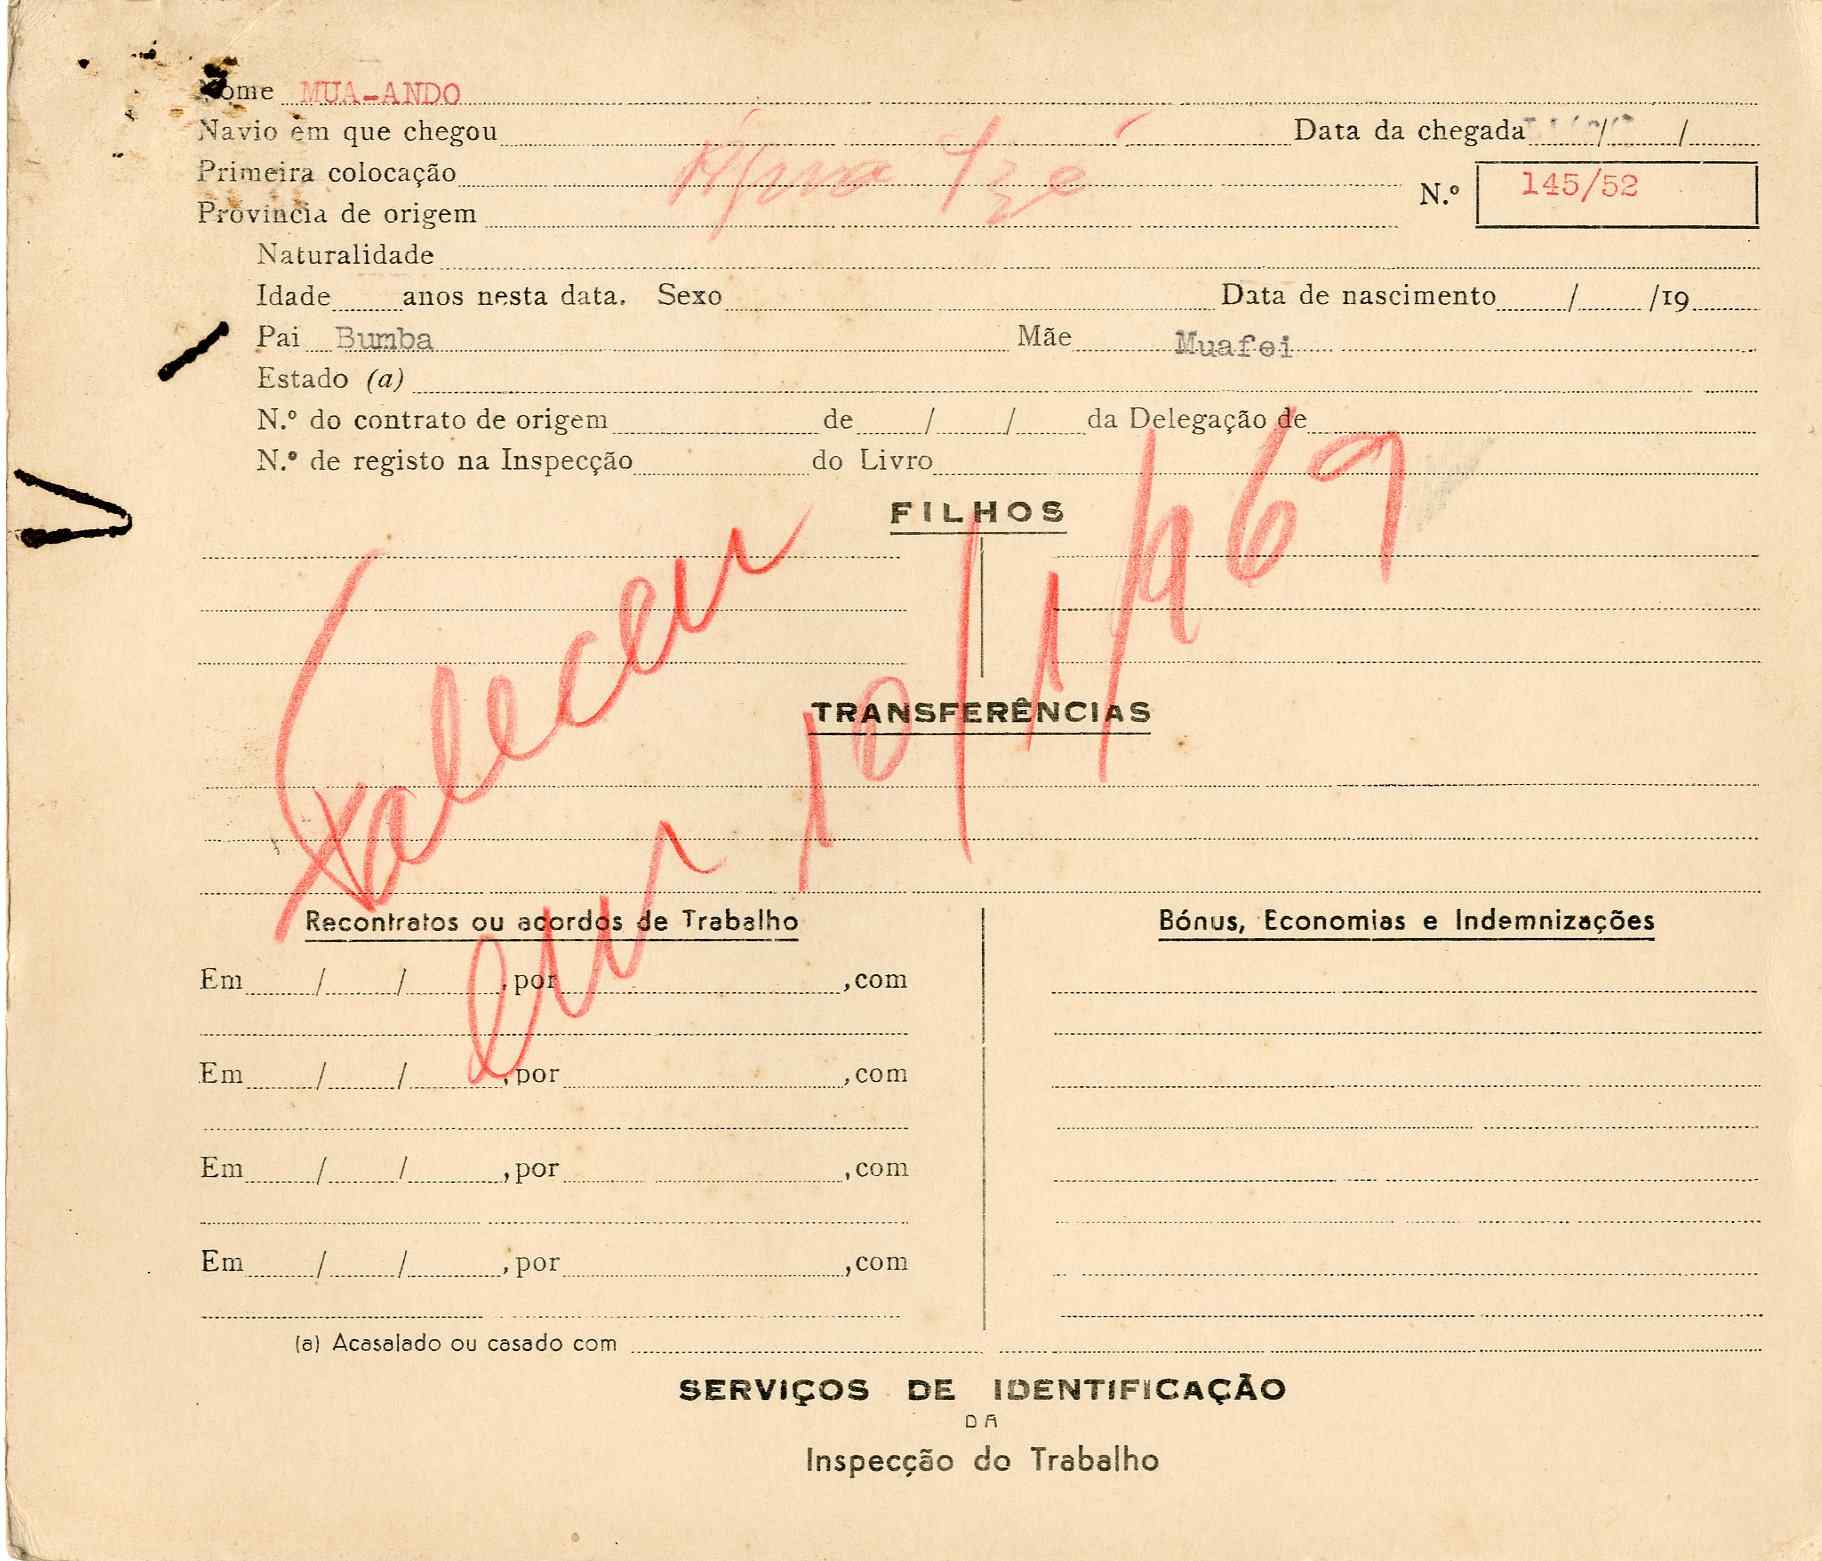 Nome MUA-ANDO
Navio em que chegou Data da chegada / /
Primeira colocação Água Izé N.º 145/52
Província de origem
Naturalidade
Idade anos nesta data. Sexo Data de nascimento / /19
Pai Bumba Mãe Muafei
Estado (a)
N.º do contrato de origem de / / da Delegação de
N.º de registo na Inspecção do Livro
FILHOS
Faleceu
em 10/1/969
TRANSFERÊNCIAS
Recontratos ou acordos de Trabalho Bónus, Economias e Indemnizações
Em / / , por , com
Em / / , por , com
Em / / , por , com
Em / / , por , com
(a) Acasalado ou casado com
SERVIÇOS DE IDENTIFICAÇÃO
DA
Inspecção do Trabalho